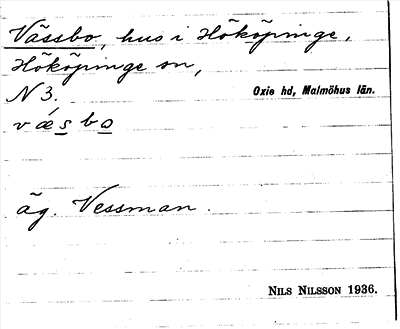 Vässbo, hus i Hököpinge,
Hököpinge sn,
N 3.
Oxie hd, Malmöhus län.
v ǽ s b o
äg. Vessman.
NILS NILSSON 1936.